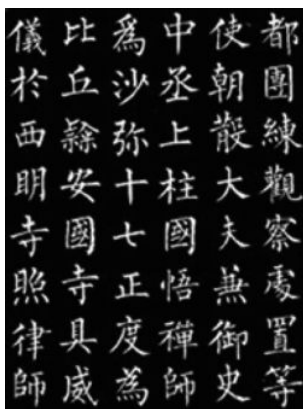 都團練觀察處置等
使朝散大夫兼御史
中丞上柱國悟禪師
為沙弥十七正度為
比丘隸安國寺具威
儀於西明寺照律師